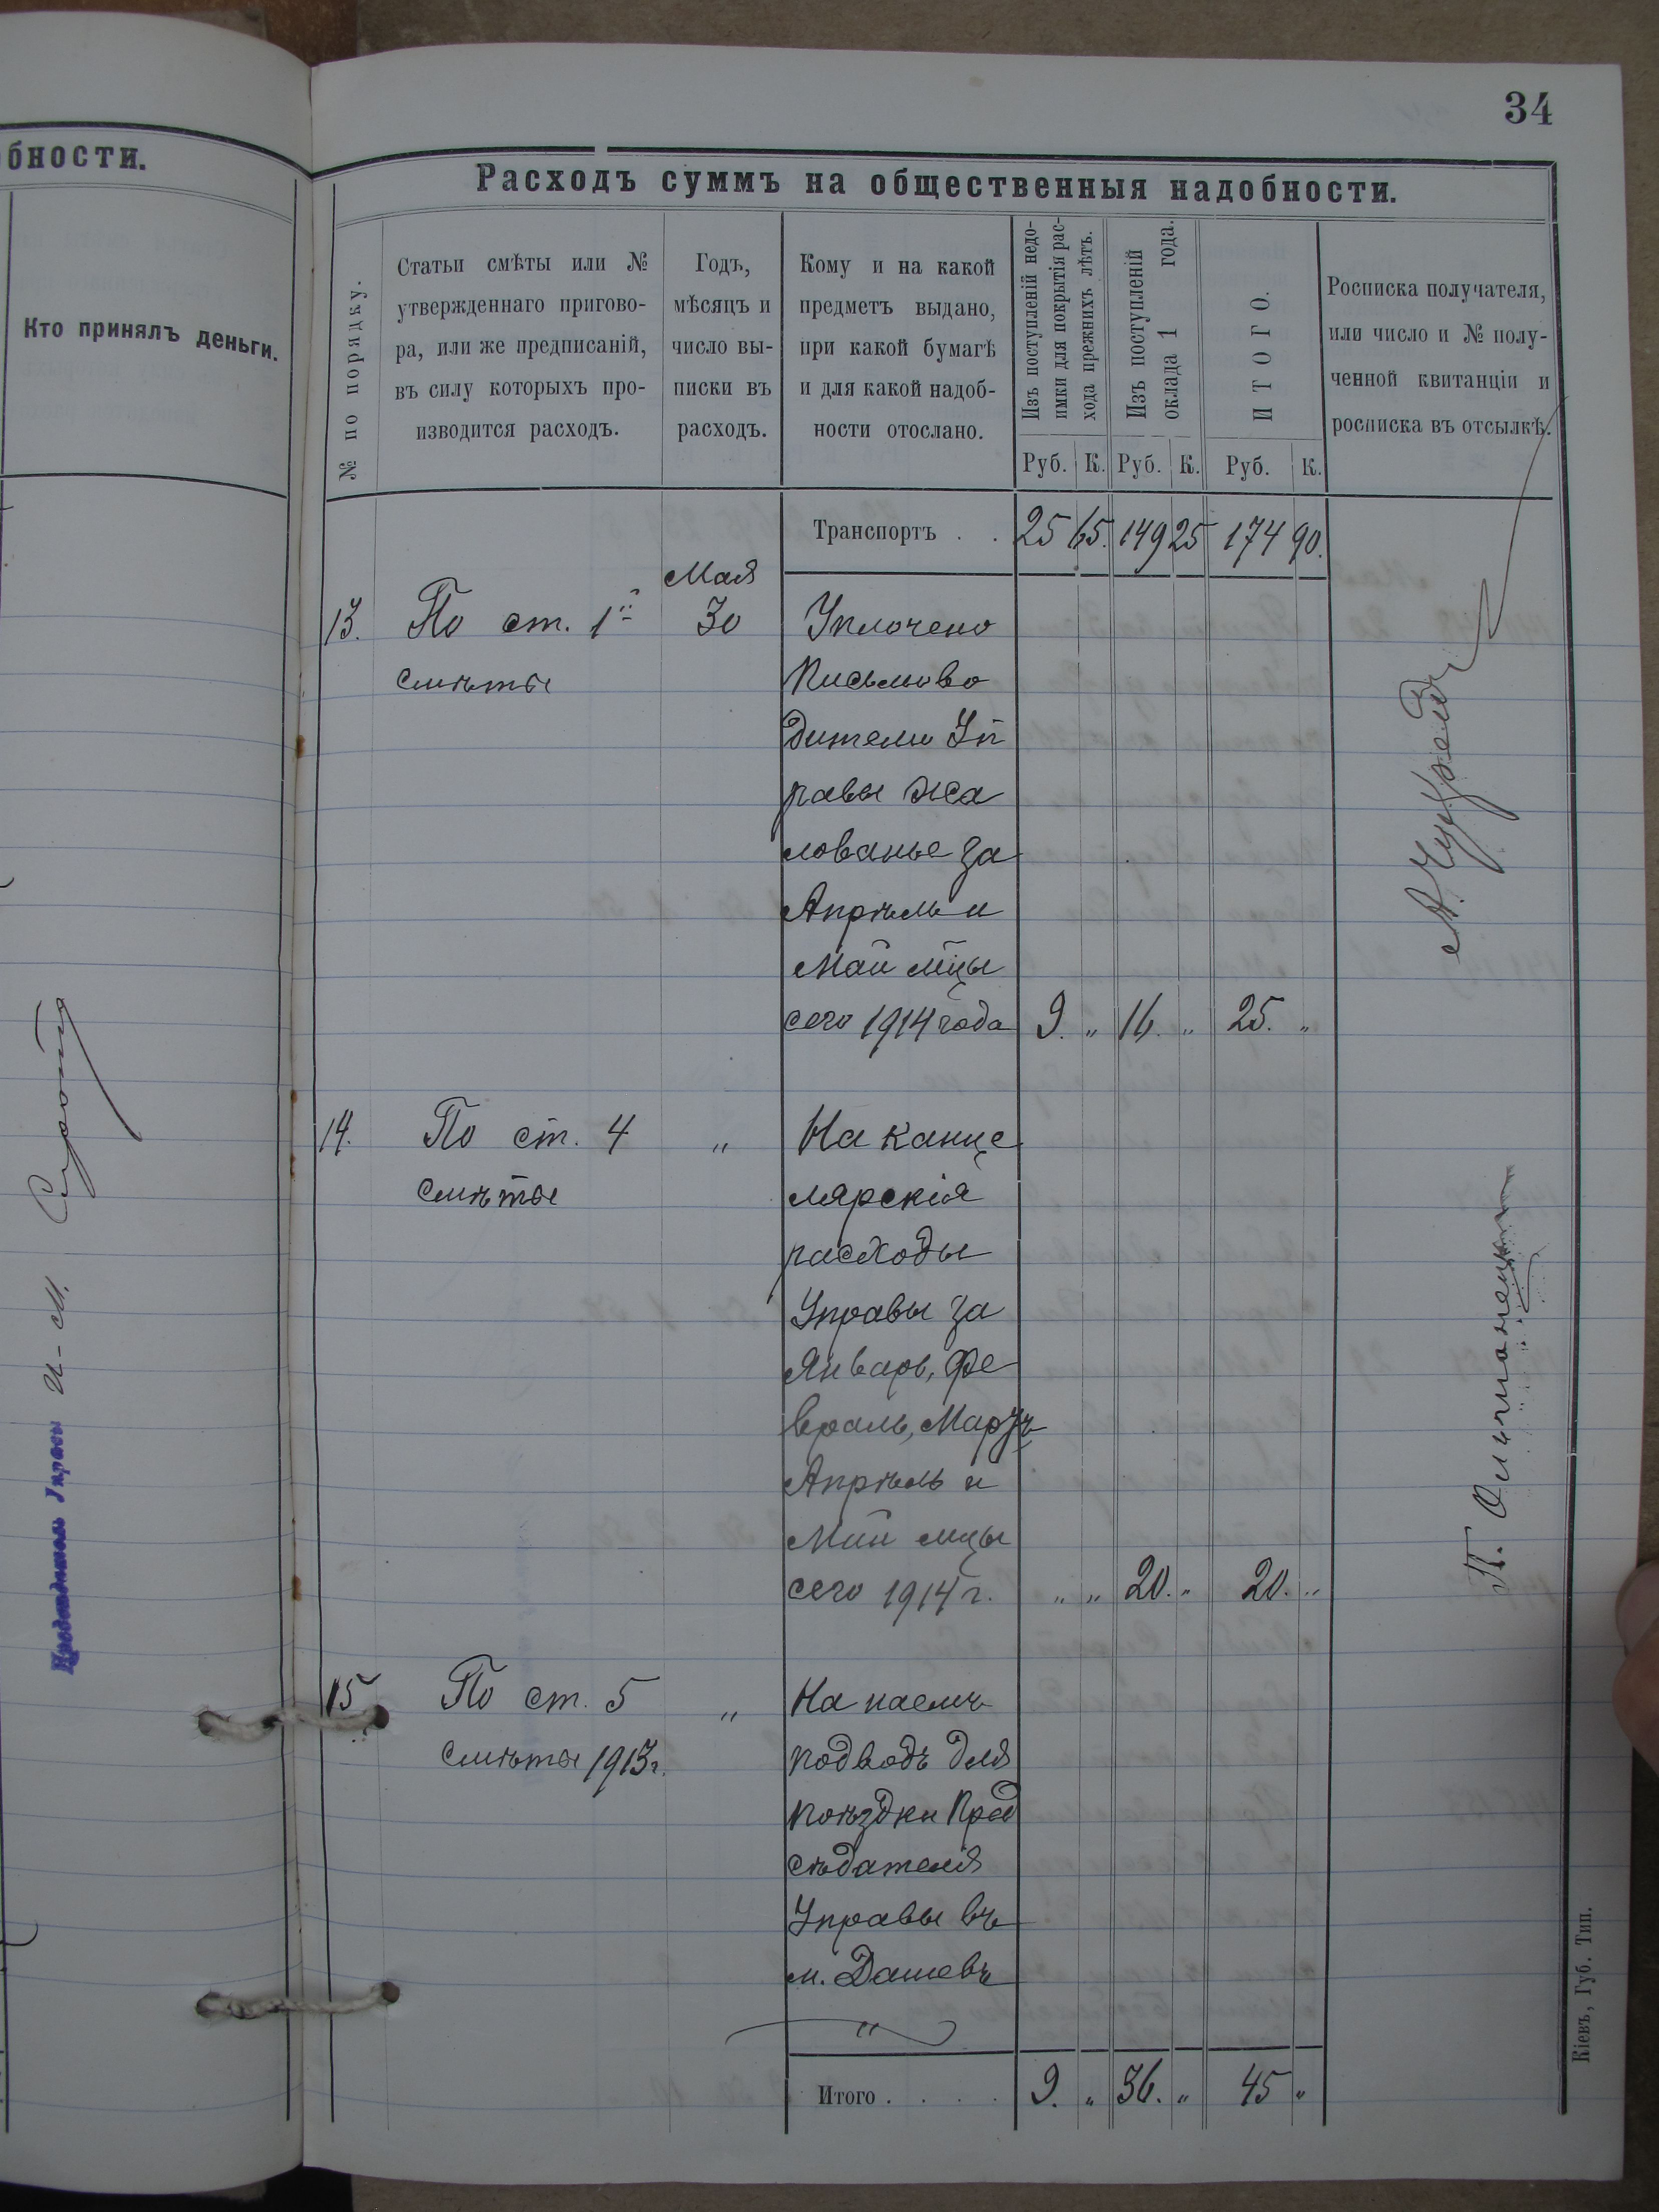 обности.
Кто принялъ деньги.
Предсѣдатель Управы И-М. Сирота
34
Расходъ суммъ на общественныя надобности.
№ по порядку.
Статьи смѣты или №
утвержденнаго пригово-
ра, или же предписаній,
въ силу которыхъ про-
изводится расходъ.
Годъ,
мѣсяцъ и
число вы-
писки въ
расходъ.
Кому и на какой
предметъ выдано,
при какой бумагѣ
и для какой надоб-
ности отослано.
Изъ поступленій недо-
имки для покрытія рас-
хода прежнихъ лѣтъ.
Изъ поступленій
оклада 1 года.
ИТОГО.
Росписка получателя,
или число и № полу-
ченной квитанціи и
росписка въ отсылкѣ.
Руб. К. Руб. К. Руб. К.
Транспортъ . . 25 65. 149 25 174 90.
Мая
13. По ст. 1й 30 Уплочено
смѣты Письмово
дителю Уп
равы жа
лованье за
Апрѣль и
Май м̃цы
сего 1914 года 9. " 16. " 25. "
14. По ст. 4 " На канце
смѣты лярскія
расходы
Управы за
Январь, Фе
враль, Мартъ
Апрѣль и
Май мцы
сего 1914 г. " " 20. " 20. "
15 По ст. 5 " На наемъ
смѣты 1913 г. подводъ для
поѣздки Пред
сѣдателя
Управы въ
м. Дашевъ
"
Итого . . . . 9. " 36. " 45 "
Кіевъ, Губ. Тип.